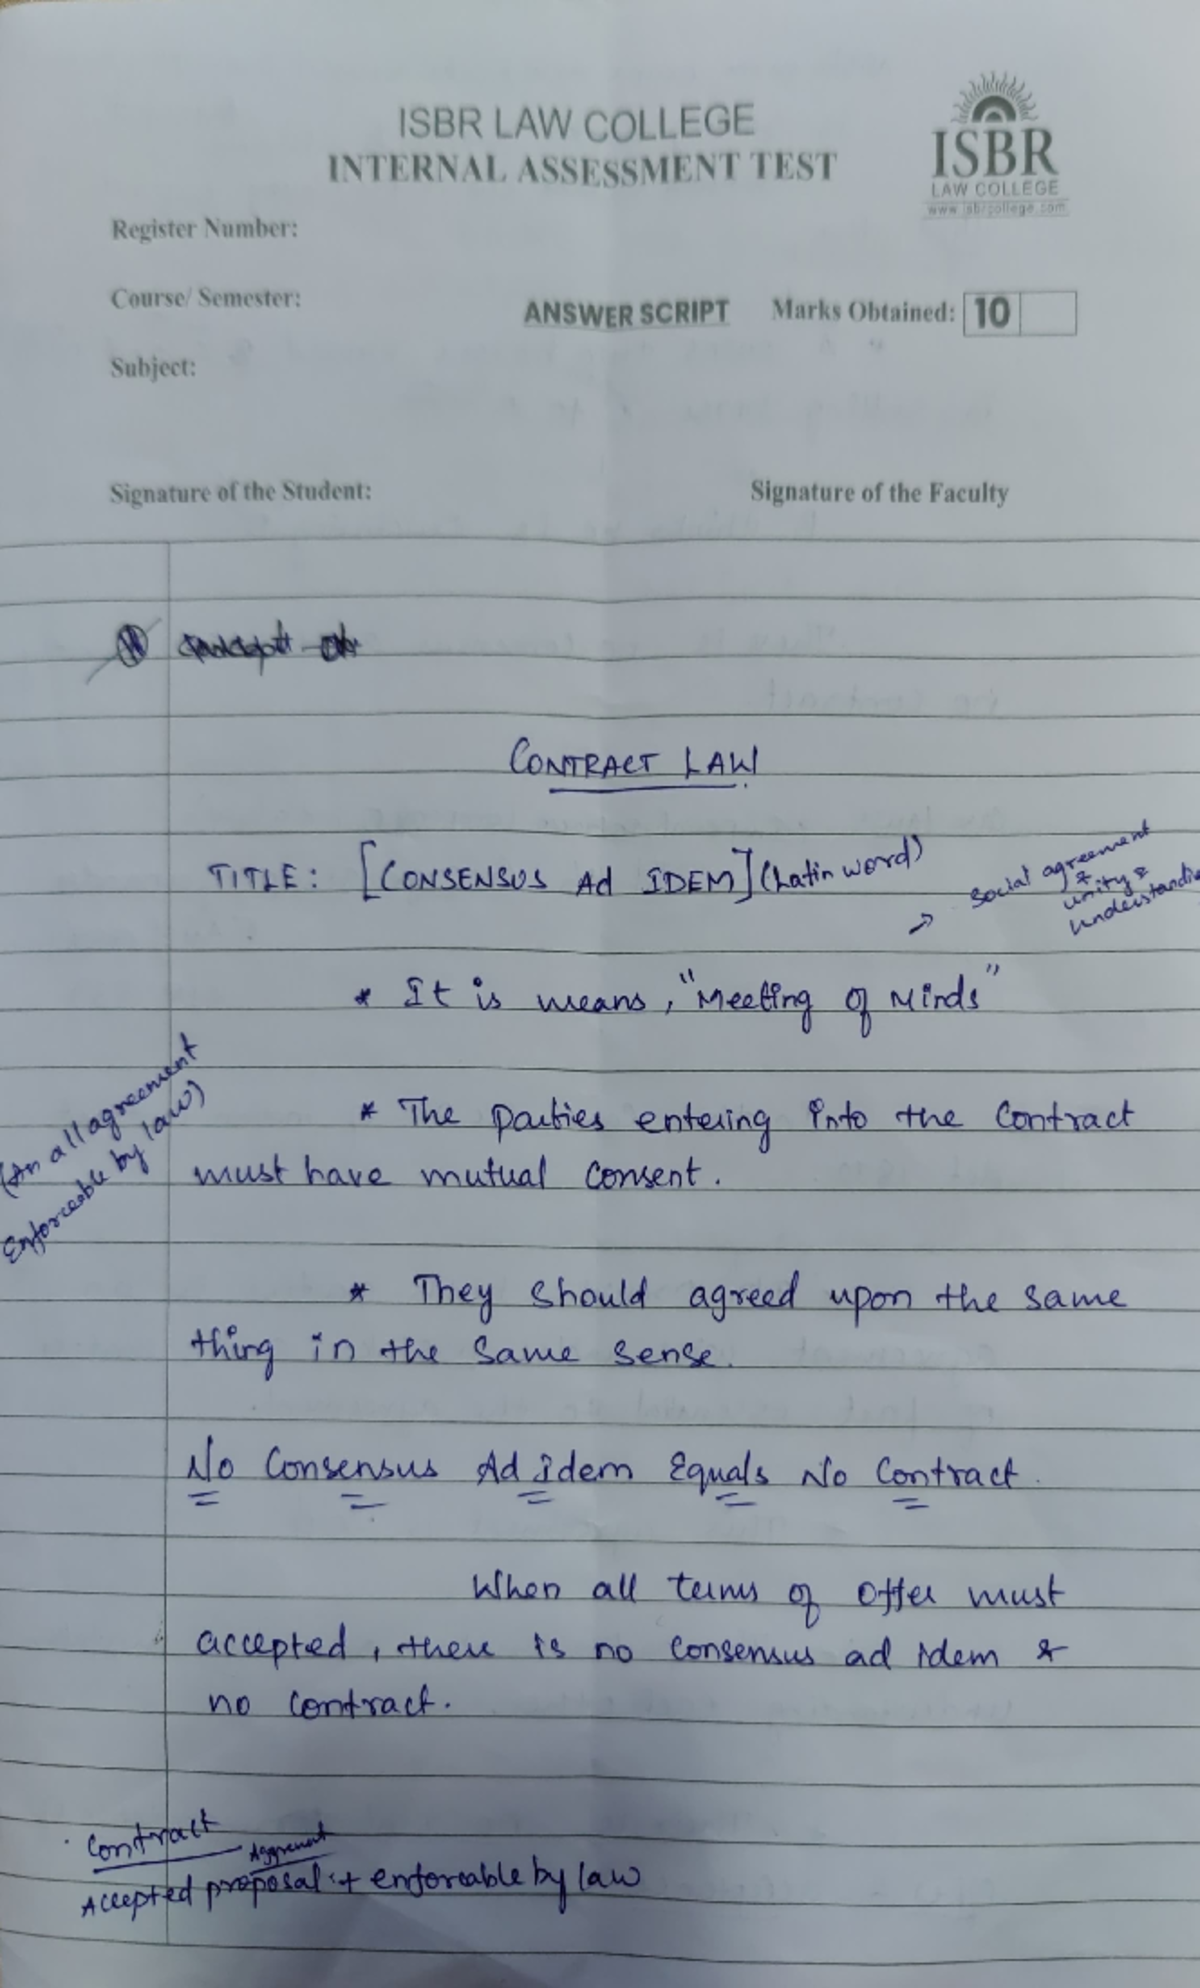 ISBR LAW COLLEGE
INTERNAL ASSESSMENT TEST
ISBR
LAW COLLEGE
www.isbrcollege.com
Register Number:
Course/ Semester:
ANSWER SCRIPT Marks Obtained: 10
Subject:
Signature of the Student: Signature of the Faculty
CONTRACT LAW
TITLE: [CONSENSUS Ad IDEM] (Latin word)
→ Social agreement
&
unity &
understandi
* It is means, "Meeting of Minds"
(An all agreement
Enforceable by law)
* The parties entering into the contract
must have mutual consent.
* They should agreed upon the same
thing in the same sense.
No Consensus Ad idem Equals No Contract.
When all terms of offer must
accepted, there is no consensus ad idem &
no contract.
Contract
Aggrement
Accepted proposal + enforcable by law